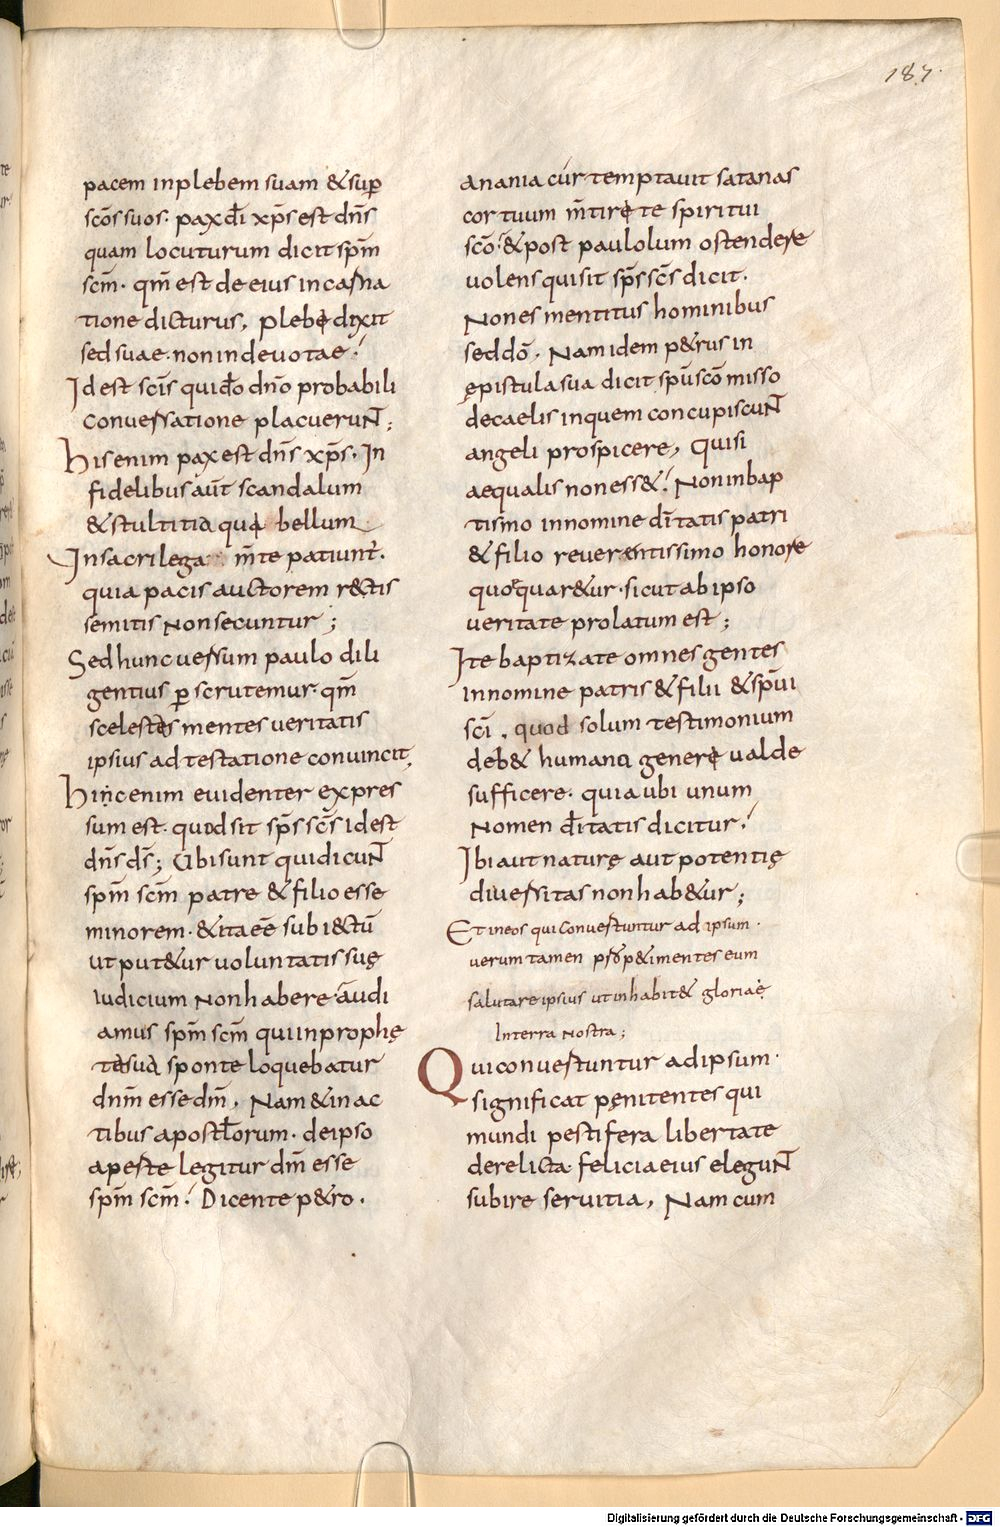 187.
pacem inplebem suam & sup̄
sc̄os suos. pax d̄i xp̄s est dn̄s
quam locuturum dicit sp̄m
sc̄m. qm̄ est de eius incarna
tione dicturus, plebẹ dixit
sed suae. non indeuotae.
Id est sc̄is qui do dn̄o probabili
conuersatione placuerunt;
his enim pax est dn̄s xp̄s. In
fidelibus aūt scandalum
& stultitia quę bellum
In sacrilega m̄te patiunt̄.
quia pacis auctorem r&ctis
semitis Non secuntur;
Sed hunc uersum paulo dili
gentius p̄scrutemur. qm̄
scelestes mentes ueritatis
ipsius adtestatione conuincit,
hinc enim euidenter expres
sum est. quod sit sp̄s sc̄s id est
dn̄s ds̄; Ubi sunt qui dicunt
sp̄m sc̄m patre & filio esse
minorem. & ita eē subiectū
ut put&ur uoluntatis suę
iudicium Non habere. audi
amus sp̄m sc̄m qui inprophę
tesua sponte loquebatur
dn̄m esse dm̄. Nam & in ac
tibus apostl̄orum. de ipso
aperte legitur dm̄ esse
sp̄m sc̄m. Dicente p&ro.
anania cur temptauit satanas
cor tuum m̄tire te spiritui
sc̄o. & post paulolum ostendere
uolens quis sit sp̄s sc̄s dicit.
Non es mentitus hominibus
sed dō. Nam idem p&rus in
ępistula sua dicit sp̄u sc̄o misso
de caelis in quem concupiscunt
angeli prospicere, Qui si
aequalis non ess&. Non in bap
tismo in nomine dī tatis patri
& filio reuerentissimo honore
quoequar&ur. sicut ab ipso
ueritate prolatum est;
Ite baptizate omnes gentes
in nomine patris & filii & sp̄ui
sc̄i. quod solum testimonium
deb& humano generę ualde
sufficere. quia ubi unum
Nomen d̄itatis dicitur.
Ibi aut naturę aut potentię
diuersitas non hab&ur;
Et in eos qui conuertuntur ad ipsum.
uerum tamen p& imentes eum
salutare ipsius ut inhabit& gloriaę
In terra nostra;
Qui conuertuntur ad ipsum.
significat pęnitentes qui
mundi pestifera libertate
derelicta felicia eius elegunt
subire seruitia, Nam cum
Digitalisierung gefördert durch die Deutsche Forschungsgemeinschaft - DFG